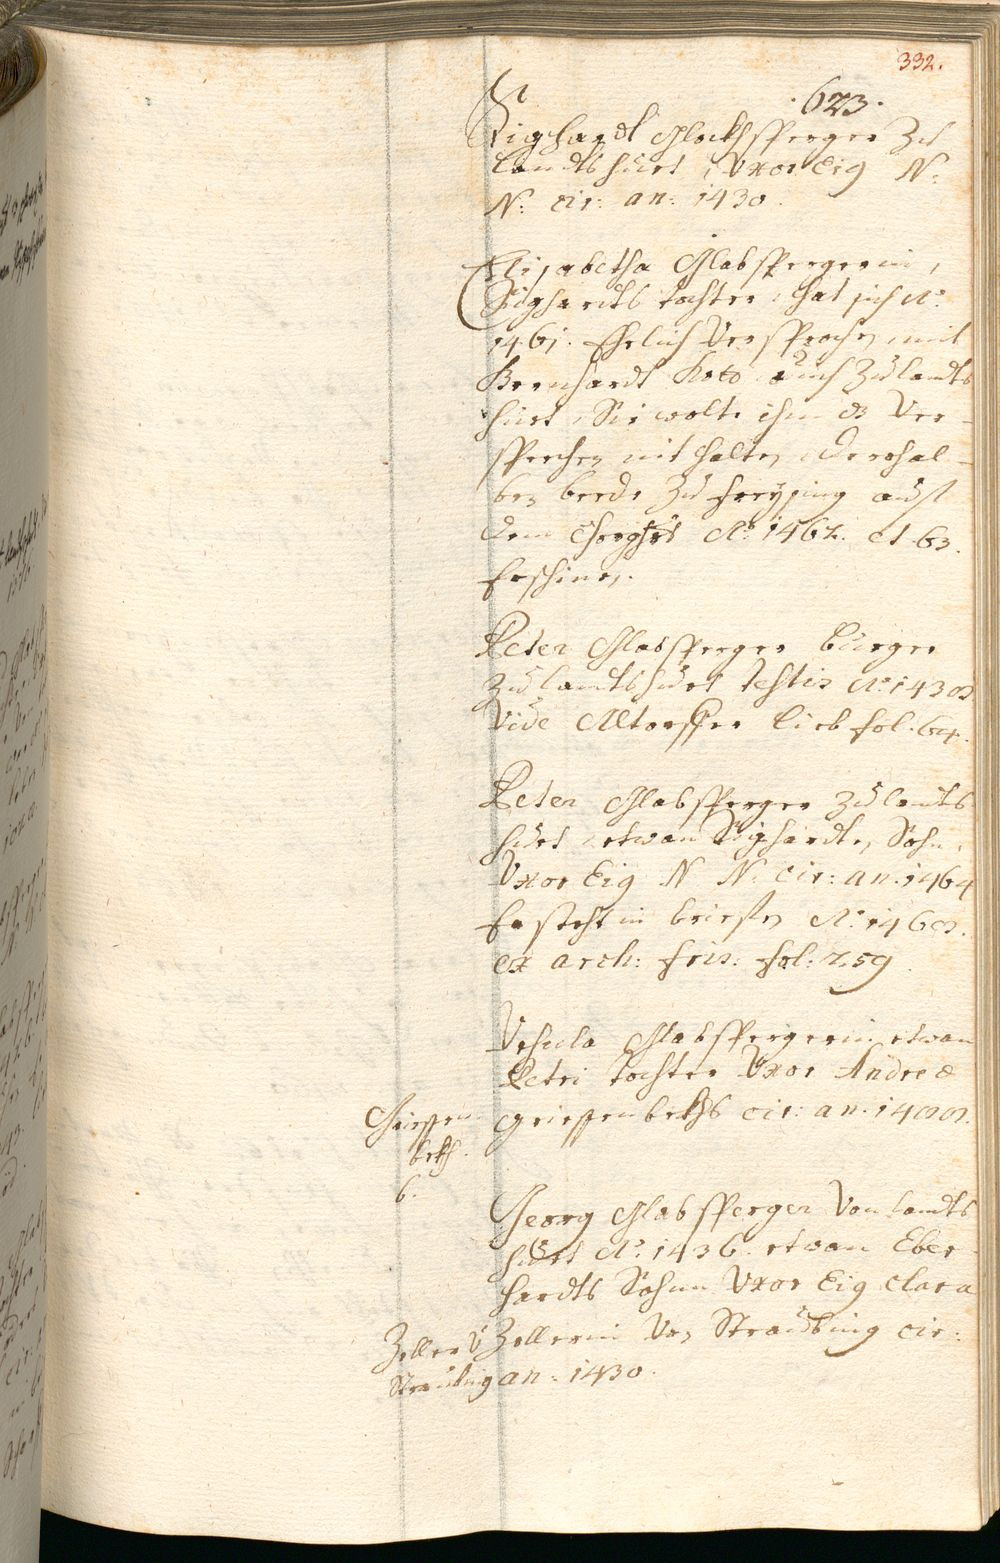 332.
.623.
Sighardt Glabsperger Zu
Landtshuet, Uxor Eig N:
N: cir: an: 1430.
Elisabetha Glabspergerin,
Sighardts tochter, hat sich A°.
1461. Ehelich Versprochen mit
Bernhardt Koto auch Zu landts
huet, Sie wolte ihm dz Ver-
sprechen nit halten, derohal-
ben beede Zu Freysing auf
dem Chorghrt A°. 1462. et 63.
Erschinen.
Peter Glabsperger burger
Zu landtshuet testis A°. 1430
Vide Altorffer lieb fol. 64.
Peter Glabsperger Zu landts
huet, etwan Sighardts Sohn,
Uxor Eig N N. cir: an. 1464
Er steht in briefen A°. 1460.
ex arch: fris: fol: 259
Ursula Glabspergerin etwan
Petri tochter Uxor Andreæ
Griessenbekhs cir: an. 1400.
Griessen
bekh.
6.
Georg Glabsperger Von landts
huet A°. 1436. etwan Eber-
hardts Sohnn Uxor Eig Clara
Zellerin Von Straubing cir:
an: 1430.
Zeller V
Straubing